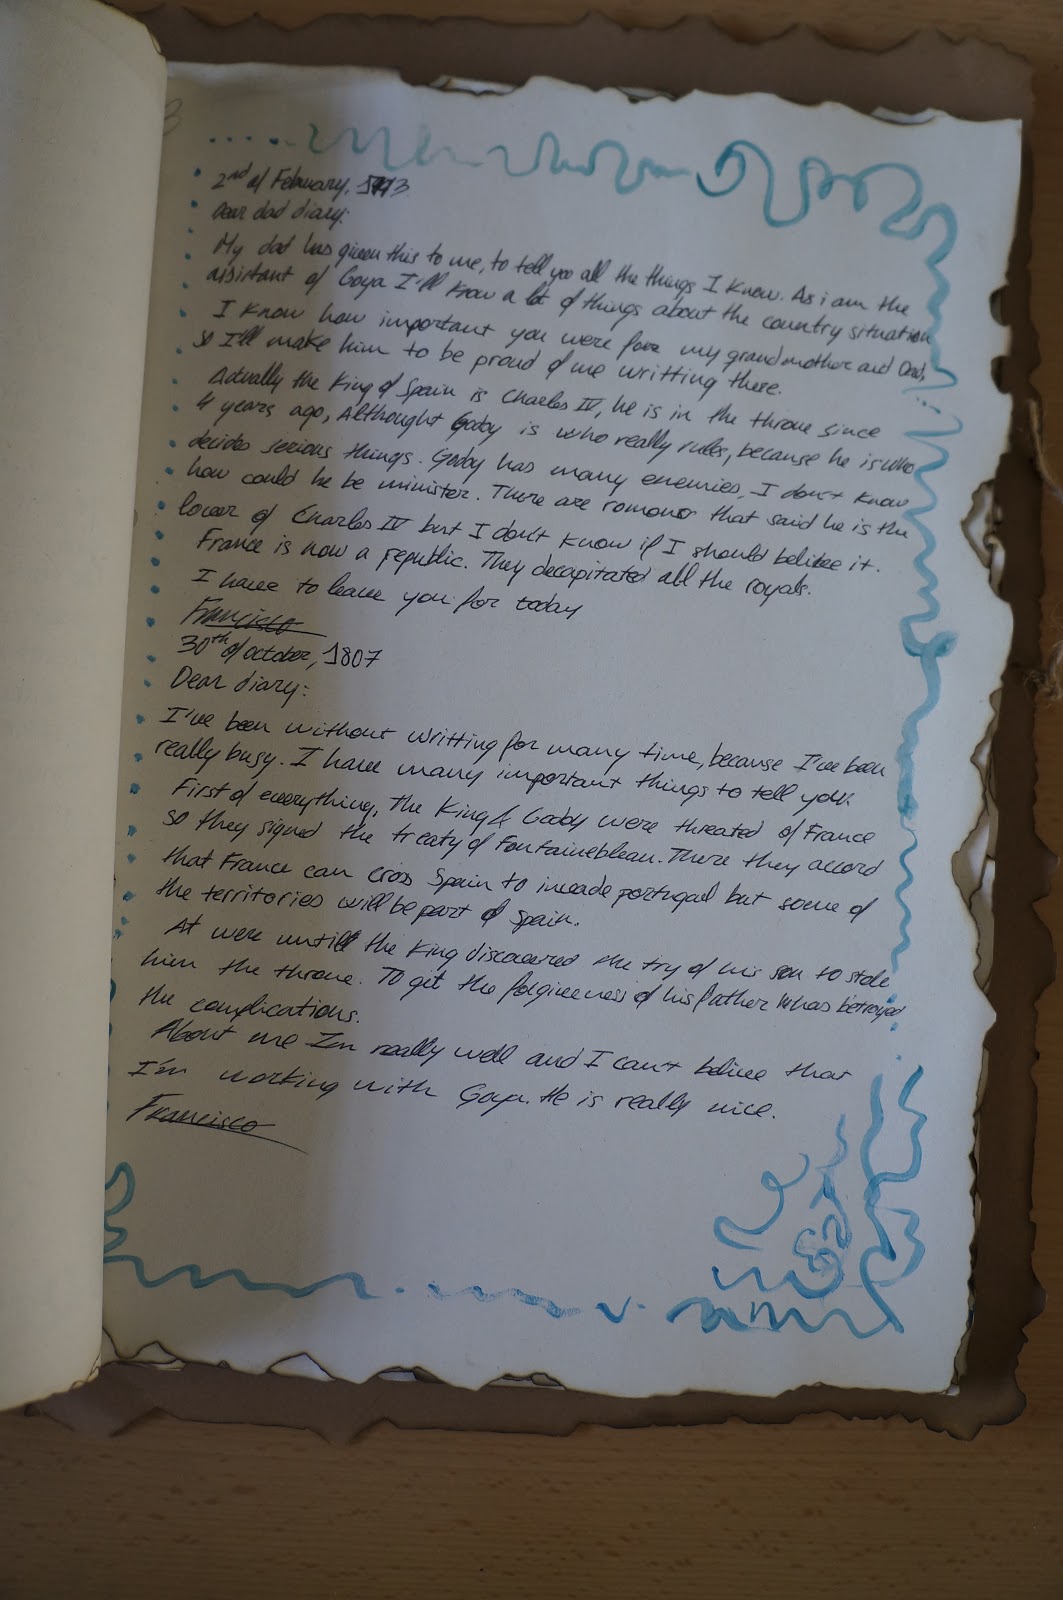 2nd of February, 1773
Dear dad diary:
My dad has given this to me, to tell you all the things I know. As i am the
assistant of Goya I'll know a lot of things about the country situation
I know how important you were for my grandmother and Dad,
so I'll make him to be proud of me writting there.
Actually the King of Spain is Charles IV, he is in the throne since
4 years ago, Althought Godoy is who really rules, because he is who
decides serious things. Godoy has many enemies, I don't know
how could he be minister. There are romours that said he is the
lover of Charles IV but I don't know if I should belibee it.
France is now a republic. They decapitated all the royals.
I have to leave you for today
Francisco
30th of october, 1807
Dear diary:
I've been without writting for many time, because I've been
really busy. I have many important things to tell you.
First of everything, the King & Godoy were threated of France
so they signed the treaty of Fontainebleau. There they accord
that France can cross Spain to invade portugal but some of
the territories will be part of Spain.
At were untill the King discovered the try of his son to stole
him the throne. To get the forgiveness of his father has betrayed
the complications.
About me I'm really well and I can't belive that
I'm working with Goya. He is really nice.
Francisco